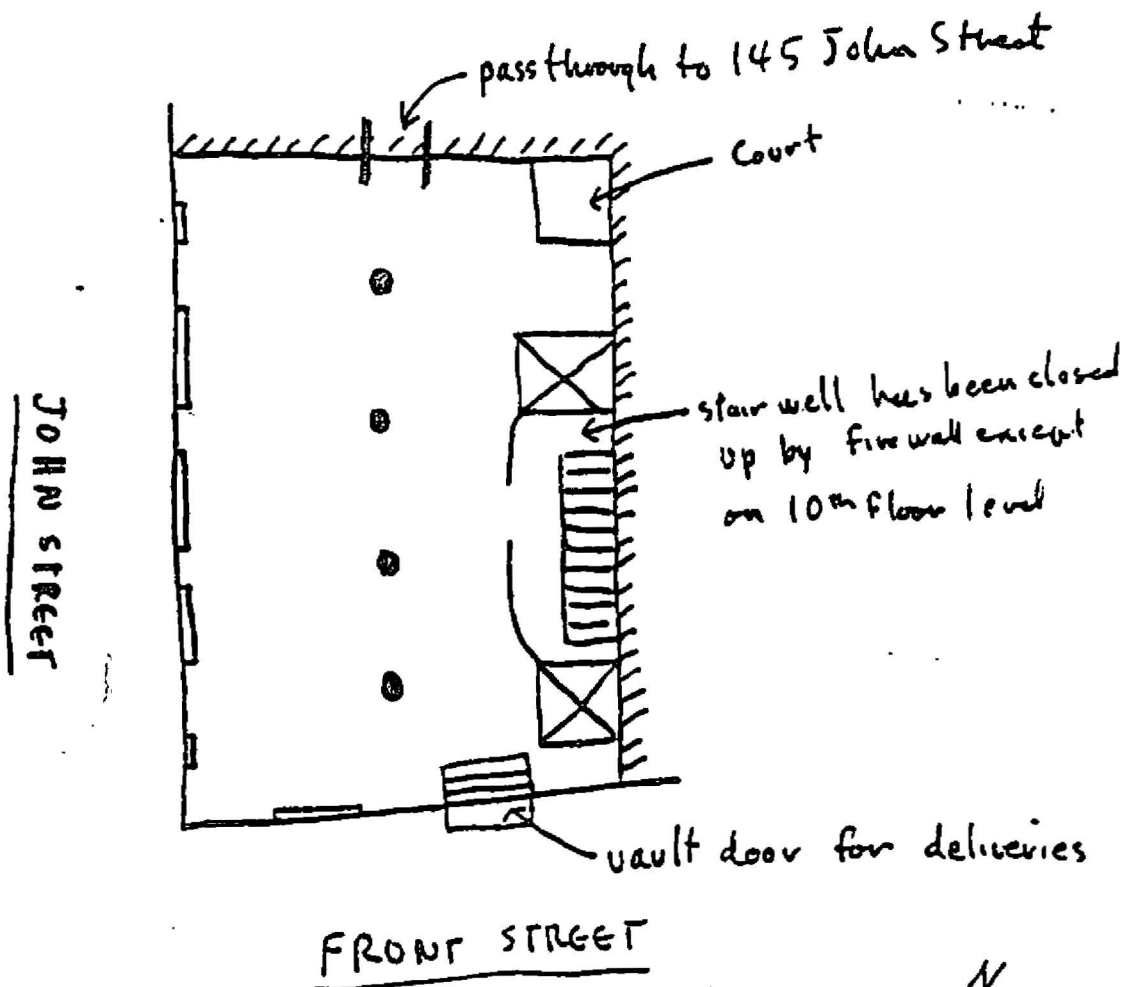 passthrough to 145 John Street
Court
stairwell has been closed
up by firewall except
on 10th floor level
JOHN STREET
vault door for deliveries
FRONT STREET
N